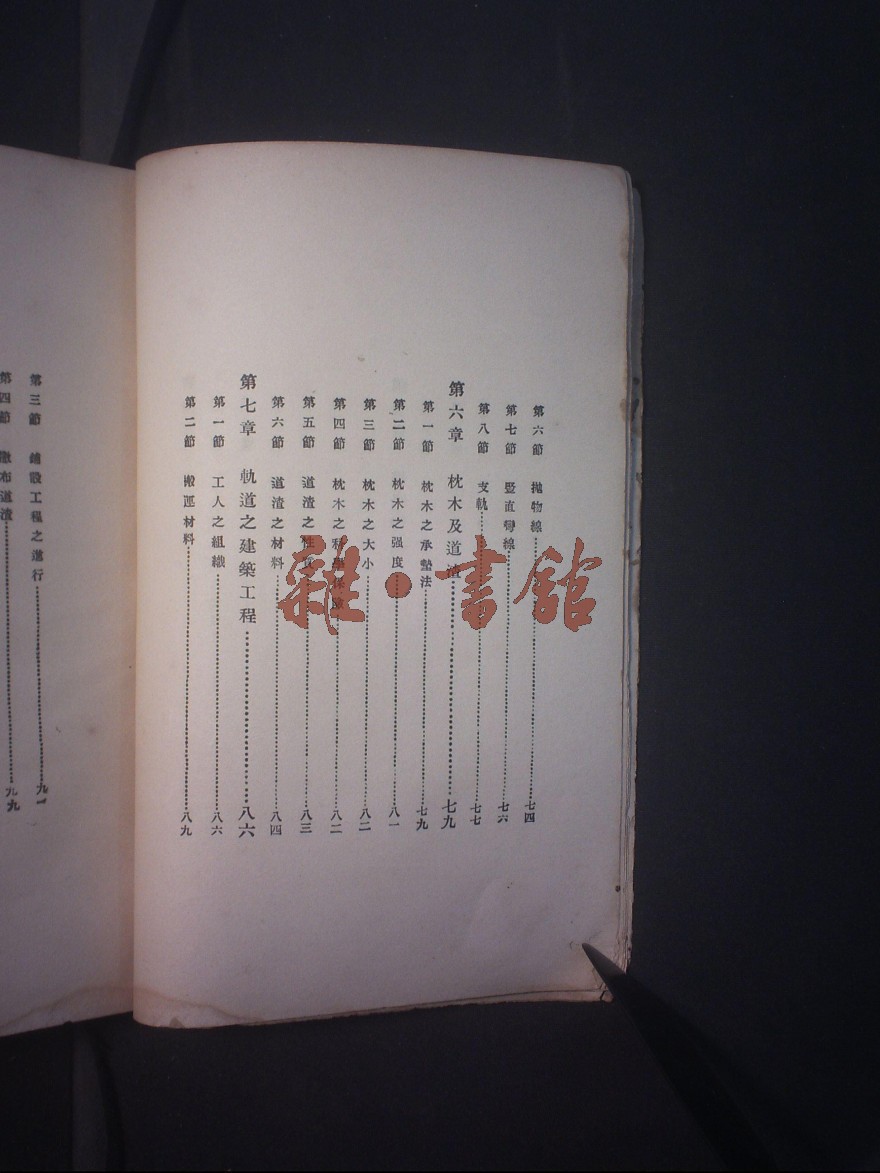 第六節 拋物線……七四
第七節 竪直彎線……七六
第八節 支軌……七七
第六章 枕木及道渣……七九
第一節 枕木之承墊法……七九
第二節 枕木之强度……八一
第三節 枕木之大小……八二
第四節 枕木之……八二
第五節 道渣之性質……八三
第六節 道渣之材料……八四
第七章 軌道之建築工程……八六
第一節 工人之組織……八六
第二節 搬運材料……八九
第三節 鋪設工程之進行……九一
第四節 散布道渣……九九
雜·書館